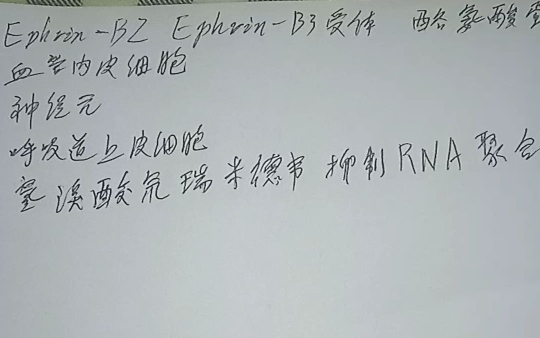 Ephrin-B2 Ephrin-B3受体 酪氨酸
血管内皮细胞
神经元
呼吸道上皮细胞
瑞米德韦 抑制RNA聚合